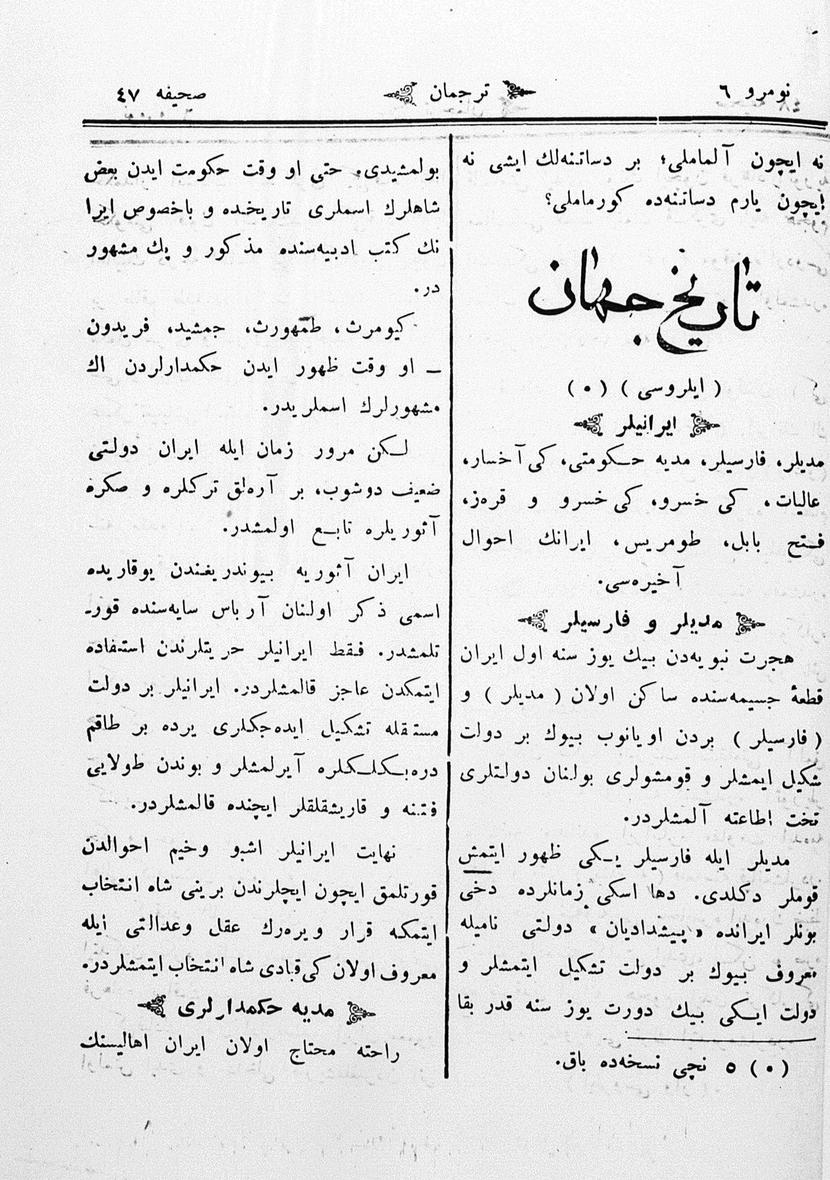 نومرو ٦
ترجمان
صحیفه ٤٧
نه ایچون آلماملی؛ بر دساتنه‌لك ایشی نه
ایچون یارم دساتنه‌ده كورماملی؟
تاریخ جهان
( ایلروسی ) (٠)
ایرانیلر
مدیلر، فارسیلر، مدیه حكومتی، كی آخسار،
عالیات، كی خسرو، كی خسرو و قره‌ز،
فتح بابل، طومریس، ایرانك احوال
آخیره‌سی.
مدیلر و فارسیلر
هجرت نبویه‌دن بیك یوز سنه اول ایران
قطعهٔ جسیمه‌سنده ساكن اولان ( مدیلر ) و
( فارسیلر ) بردن اویانوب بیوك بر دولت
شكیل ایمشلر و قومشولری بولنان دولتلری
تخت اطاعته آلمشلردر.
مدیلر ایله فارسیلر یكی ظهور ایتمش
قوملر دكلدی. دها اسكی زمانلرده دخی
بونلر ایرانده «پیشدادیان» دولتی نامیله
معروف بیوك بر دولت تشكیل ایتمشلر و
دولت ایكی بیك دورت یوز سنه قدر بقا
(٠) ٥ نچی نسخه‌ده باق.
بولمشیدی. حتی او وقت حكومت ایدن بعض
شاهلرك اسملری تاریخده و باخصوص ایرا
نك كتب ادبیه‌سنده مذكور و پك مشهور
در.
كیومرث، طمهورث، جمشید، فریدون
ـ او وقت ظهور ایدن حكمدارلردن اك
مشهورلرك اسملریدر.
لكن مرور زمان ایله ایران دولتی
ضعیف دوشوب، بر آره‌لق تركلره و صكره
آثوریلره تابع اولمشدر.
ایران آثوریه بیوندریغندن یوقاریده
اسمی ذكر اولنان آرباس سایه‌سنده قور-
تلمشدر. فقط ایرانیلر حریتلرندن استفاده
ایتمكدن عاجز قالمشلردر. ایرانیلر بر دولت
مستقله تشكیل ایده‌جكلری یرده بر طاقم
دره‌بكلكلره آیرلمشلر و بوندن طولایی
فتنه و قاریشقلقلر ایچنده قالمشلردر.
نهایت ایرانیلر اشبو وخیم احوالدن
قورتلمق ایچون ایچلرندن برینی شاه انتخاب
ایتمكه قرار ویره‌رك عقل وعدالتی ایله
معروف اولان كی‌قبادی شاه انتخاب ایتمشلردر.
مدیه حكمدارلری
راحته محتاج اولان ایران اهالیسنك